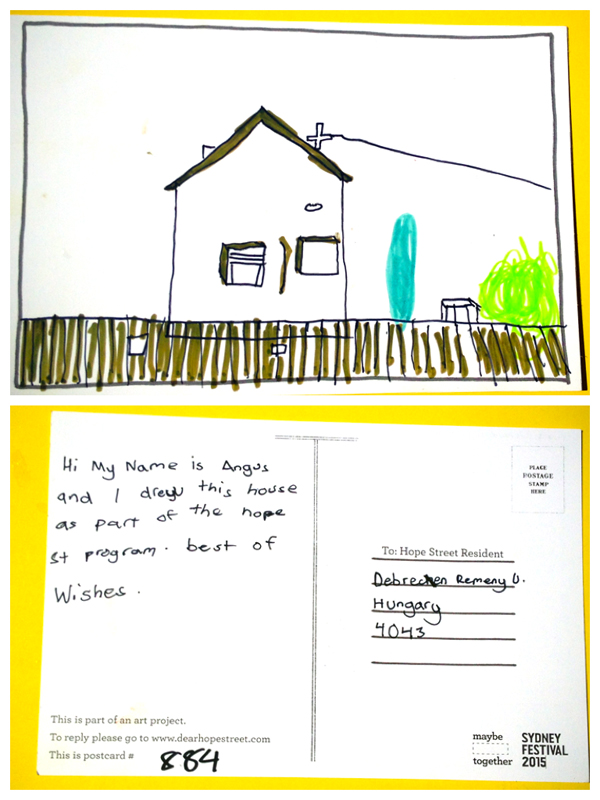 Hi My Name is Angus
and I drew this house
as part of the hope
st program. best of
Wishes.
This is part of an art project.
To reply please go to www.dearhopestreet.com
This is postcard # 884
PLACE
POSTAGE
STAMP
HERE
To: Hope Street Resident
Debrecen Remeny U.
Hungary
4043
maybe
together
SYDNEY
FESTIVAL
2015